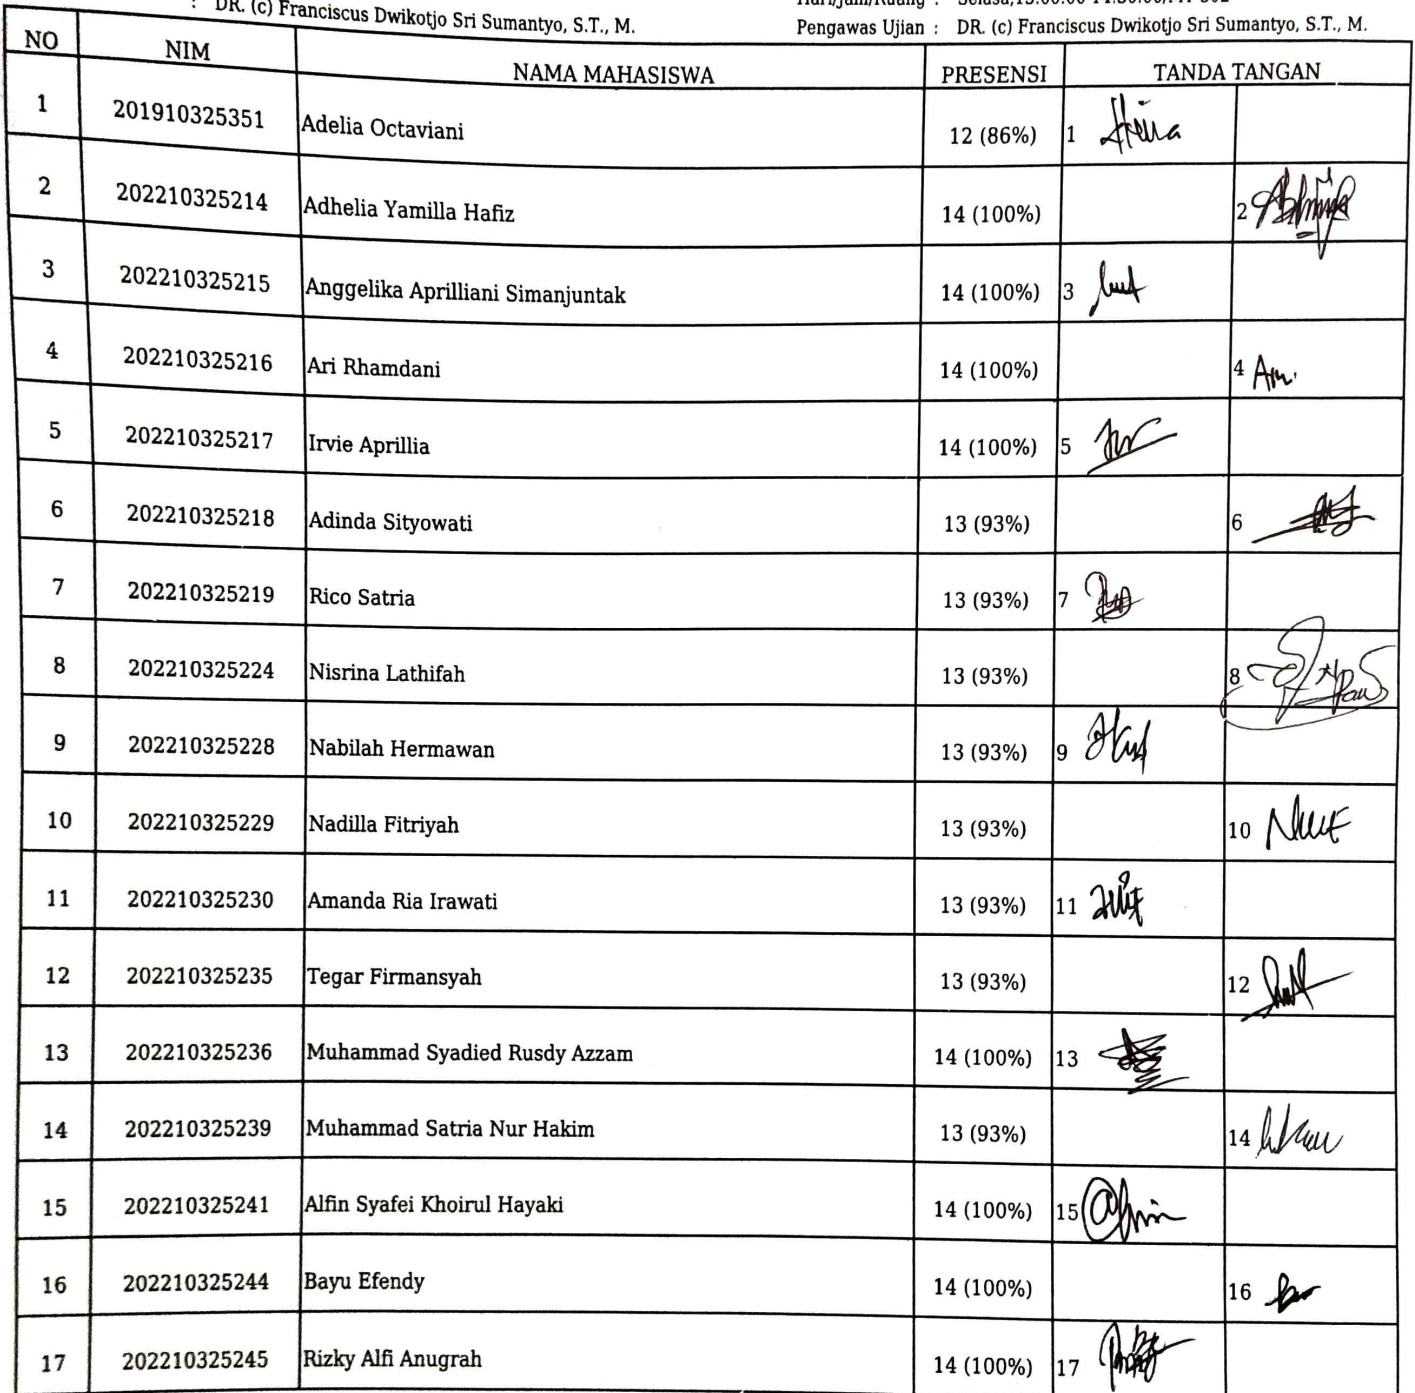 : DR. (c) Franciscus Dwikotjo Sri Sumantyo, S.T., M.
Pengawas Ujian : DR. (c) Franciscus Dwikotjo Sri Sumantyo, S.T., M.
NO NIM NAMA MAHASISWA PRESENSI TANDA TANGAN
1 201910325351 Adelia Octaviani 12 (86%) 1
2 202210325214 Adhelia Yamilla Hafiz 14 (100%) 2
3 202210325215 Anggelika Aprilliani Simanjuntak 14 (100%) 3
4 202210325216 Ari Rhamdani 14 (100%) 4
5 202210325217 Irvie Aprillia 14 (100%) 5
6 202210325218 Adinda Sityowati 13 (93%) 6
7 202210325219 Rico Satria 13 (93%) 7
8 202210325224 Nisrina Lathifah 13 (93%) 8
9 202210325228 Nabilah Hermawan 13 (93%) 9
10 202210325229 Nadilla Fitriyah 13 (93%) 10
11 202210325230 Amanda Ria Irawati 13 (93%) 11
12 202210325235 Tegar Firmansyah 13 (93%) 12
13 202210325236 Muhammad Syadied Rusdy Azzam 14 (100%) 13
14 202210325239 Muhammad Satria Nur Hakim 13 (93%) 14
15 202210325241 Alfin Syafei Khoirul Hayaki 14 (100%) 15
16 202210325244 Bayu Efendy 14 (100%) 16
17 202210325245 Rizky Alfi Anugrah 14 (100%) 17